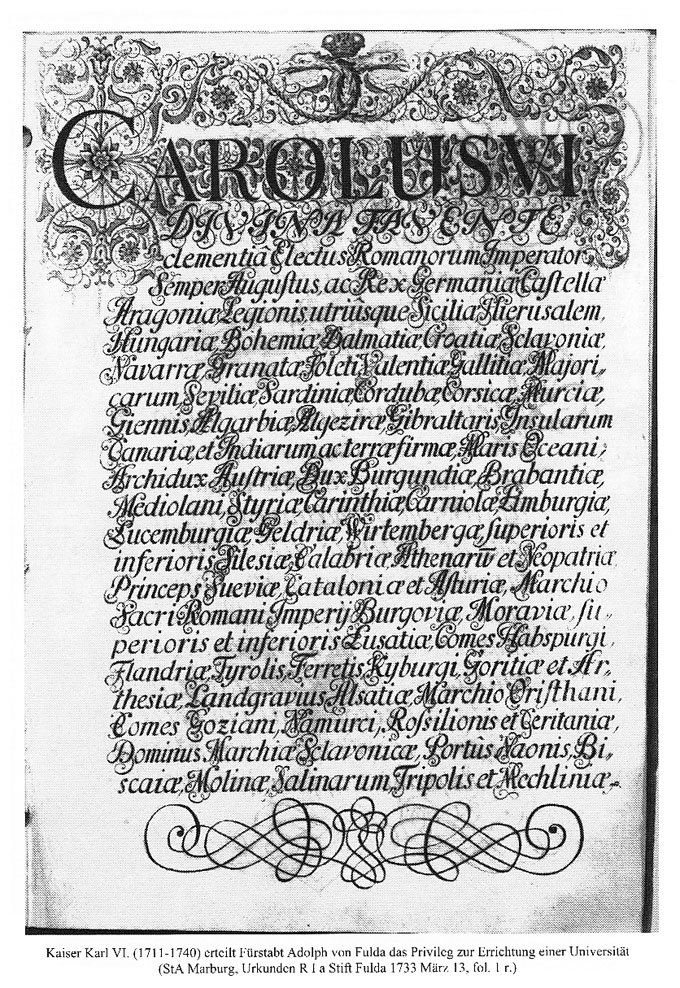 CAROLUS VI
DIVINA FAVENTE
clementia Electus Romanorum Imperator
Semper Augustus, ac Rex Germaniæ Castellæ
Aragoniæ, Legionis utriusque Siciliæ, Hierusalem,
Hungariæ Bohemiæ, Dalmatiæ, Croatiæ, Sclavoniæ,
Navarræ, Granatæ, Toleti, Valentiæ, Gallitiæ, Majori„
carum, Seviliæ, Sardiniæ, Cordubæ, Corsicæ, Murciæ,
Giennis, Algarbiæ, Algeziræ, Gibraltaris, Insularum
Canariæ, et Indiarum ac terræ firmæ, Maris Oceani,
Archidux Austriæ, Dux Burgundiæ, Brabantiæ,
Mediolani, Styriæ, Carinthiæ, Carniolæ, Limburgiæ,
Lucemburgiæ, Geldriæ, Wirtembergæ, superioris et
inferioris Silesiæ, Calabriæ, Athenarū et Neopatriæ
Princeps Sueviæ, Cataloniæ et Asturiæ, Marchio
Sacri Romani Imperij Burgoviæ, Moraviæ, su„
perioris et inferioris Lusatiæ, Comes Habspurgi,
Flandriæ, Tyrolis, Ferretis, Kyburgi, Goritiæ et Ar„
thesiæ, Landgravius Alsatiæ, Marchio Oristhani,
Comes Goziani, Namurci, Rossilionis et Ceritaniæ,
Dominus Marchiæ Sclavonicæ, Portùs Naonis, Bi„
scaiæ, Molinæ, Salinarum, Tripolis et Mechliniæ„
Kaiser Karl VI. (1711-1740) erteilt Fürstabt Adolph von Fulda das Privileg zur Errichtung einer Universität
(StA Marburg, Urkunden R I a Stift Fulda 1733 März 13, fol. 1 r.)